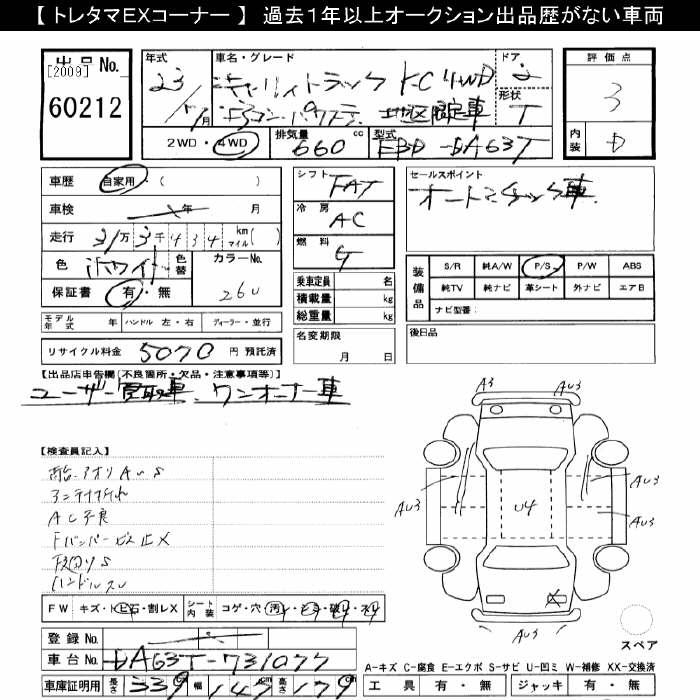 【トレタマEXコーナー】 過去1年以上オークション出品歴がない車両
出品No.
[2009]
60212
年式
23/7月
車名・グレード
キャリイトラック KC 4WD
エアコン・パワステ 地区限定車
ドア
2
形状
T
2WD・4WD
排気量 660 cc
型式 EBD-DA63T
評価点
3
内装 D
車歴 自家用・( )
車検 年 月
走行 3万 3千 4 3 4 km マイル( )
色 ホワイト 色替
カラーNo. 26U
保証書 有・無
シフト FAT
冷房 AC
燃料 G
乗車定員 名
積載量 kg
総重量 kg
セールスポイント
オートマチック車
装備品
S/R 純A/W P/S P/W ABS
純TV 純ナビ 革シート 外ナビ エアB
ナビ型番:
モデル年式 年 ハンドル 左・右 ディーラー・並行
リサイクル料金 5070 円 預託済
名変期限
月 日
後日品
【出品店申告欄(不良箇所・欠品・注意事項等)】
ユーザー買取車、ワンオーナー車
【検査員記入】
荷台、アオリ AUS
アンテナ折れ
AC不良
Fバンパービス止X
下回りS
ハンドルスレ
A3
AU3
AU3
AU3
U4
AU3
AU3
X
AU3
スペア
FW キズ・ヒビ石・割レX シート内装 コゲ・穴・汚レ・シミ・破レ・スレ
登録No.
車台No. DA63T-731077
車庫証明用 長さ 339 幅 147 高さ 179
A-キズ C-腐食 E-エクボ S-サビ U-凹ミ W-補修 XX-交換済
工具 有・無 ジャッキ 有・無